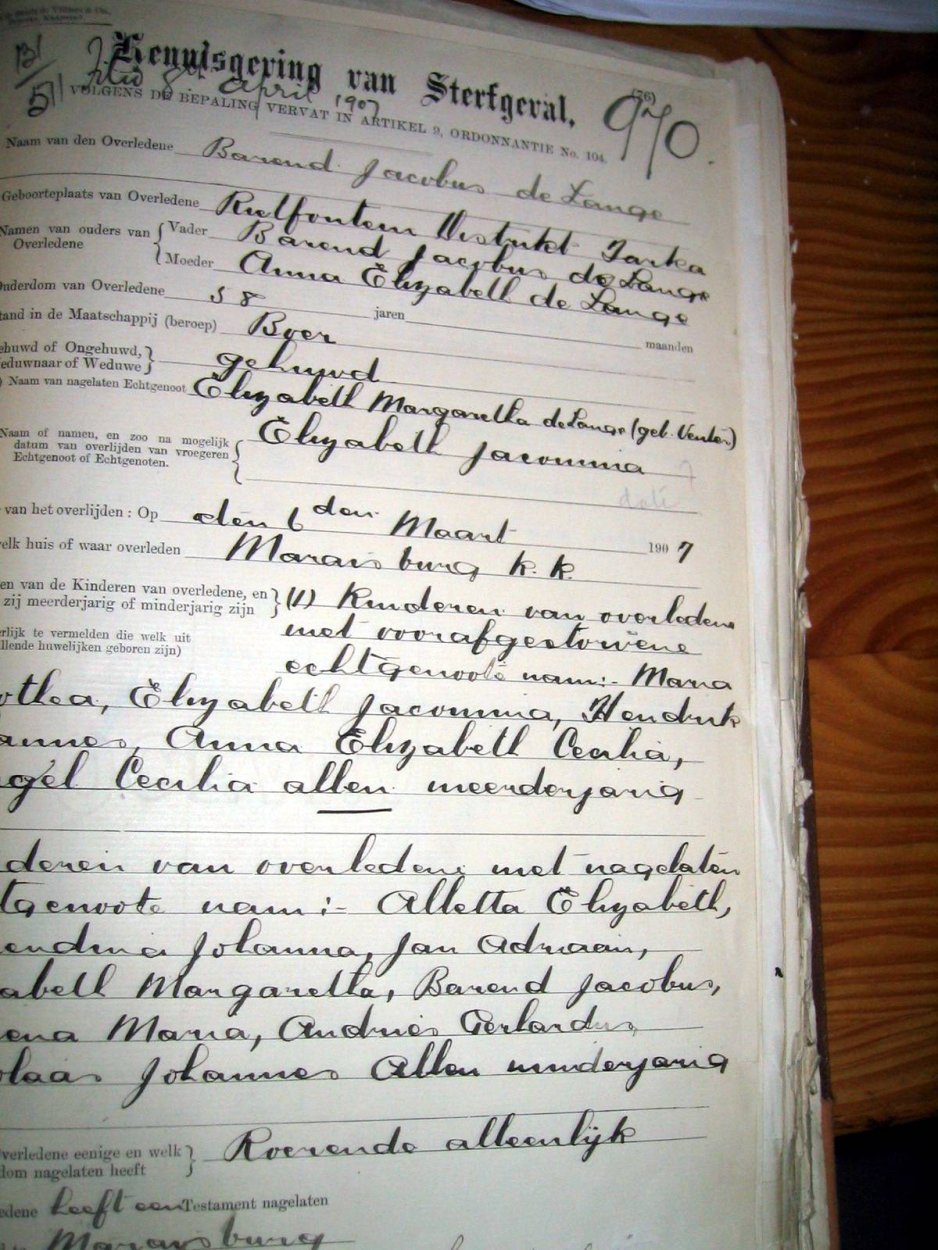 131/51
Filed 8th April 1907
Kennisgeving van Sterfgeval,
(76)
970.
VOLGENS DE BEPALING VERVAT IN ARTIKEL 9, ORDONNANTIE No. 104.
Naam van den Overledene Barend Jacobus de Lange
Geboorteplaats van Overledene Rietfontein Distrikt Tarka
Namen van ouders van Overledene { Vader Barend Jacobus de Lange
Moeder Anna Elizabeth de Lange
Ouderdom van Overledene 58 jaren maanden
tand in de Maatschappij (beroep) Boer
ehuwd of Ongehuwd, eduwnaar of Weduwe } gehuwd
) Naam van nagelaten Echtgenoot Elizabeth Margaretha de Lange (geb. Venter)
Naam of namen, en zoo na mogelijk datum van overlijden van vroegeren Echtgenoot of Echtgenoten. { Elizabeth Jacomina ?
date
van het overlijden: Op den 6 den Maart 1907
elk huis of waar overleden Maraisburg k. k.
en van de Kinderen van overledene, en zij meerderjarig of minderjarig zijn } (1) Kinderen van overledene
erlijk te vermelden die welk uit llende huwelijken geboren zijn) met voorafgestorvene
echtgenoote nam:- Maria
othea, Elizabeth Jacomina, Hendrik
annes, Anna Elizabeth Cecilia,
gel Cecilia allen meerderjarig
deren van overledene met nagelaten
tgenoote nam:- Alletta Elizabeth,
endina Johanna, Jan Adriaan,
abeth Margaretha, Barend Jacobus,
ena Maria, Andries Gerhardus,
olaas Johannes Allen minderjarig
verledene eenige en welk dom nagelaten heeft } Roerende alleenlijk
edene heeft een Testament nagelaten
Maraisburg